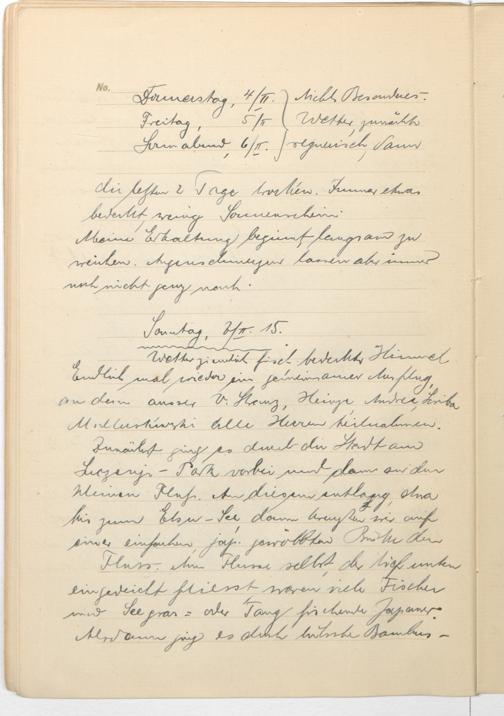 No.
Donnerstag, 4/II. } Nichts Besonderes.
Freitag, 5/II } Wetter, zunächst
Sonnabend, 6/II. } regnerisch, dann
die letzten 2 Tage trocken. Immer etwas
bedeckt, wenig Sonnenschein.
Meine Erkältung beginnt langsam zu
weichen. Augenschmerzen lassen aber immer
noch nicht ganz nach.
Sonntag, 7/II. 15.
Wetter ziemlich frisch bedeckter Himmel
Endlich mal wieder ein gemeinsamer Ausflug,
an dem ausser V. Stenz, Heinze, Andreé,
alle Herren teilnahmen.
Zunächst ging es durch die Stadt am
Park vorbei und dann an den
kleinen Fluß. An diesem entlang, etwa
bis zum See, dann kreuzten wir auf
einer einfachen, jap. gewölbten Brücke den
Fluss. Am Flusse selbst, der tief unten
eingedeicht fliesst waren viele Fischer
und Seegras= oder Tang fischende Japaner.
Alsdann ging es durch hübsche Bambus-